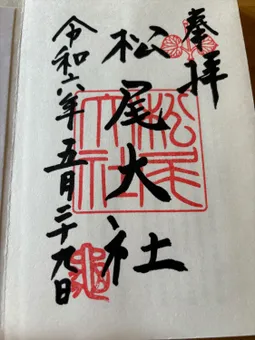 奉拝
松尾大社
松尾
大社
令和六年五月二十九日